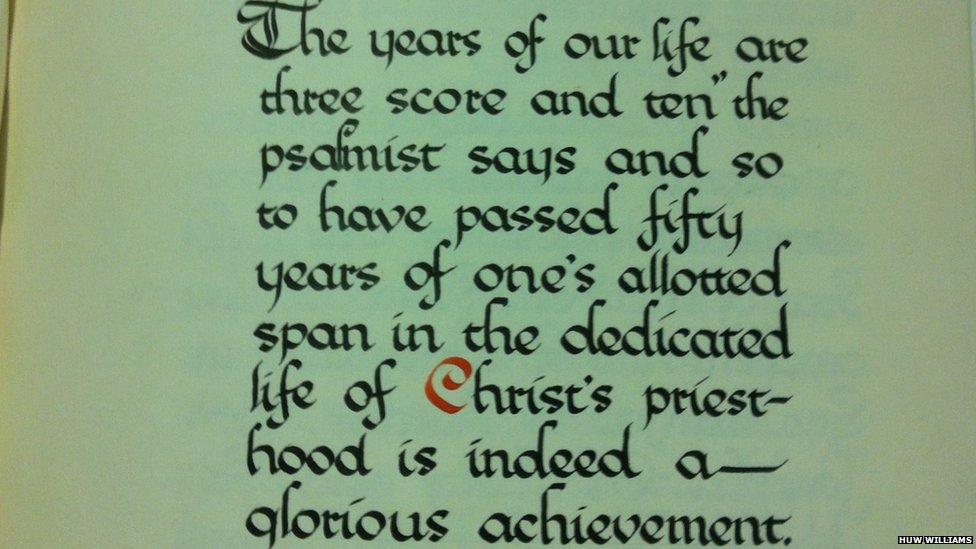 The years of our life are
three score and ten" the
psalmist says and so
to have passed fifty
years of one's allotted
span in the dedicated
life of Christ's priest-
hood is indeed a—
glorious achievement.
HUW WILLIAMS